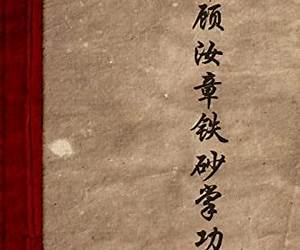 顾汝章铁砂掌功